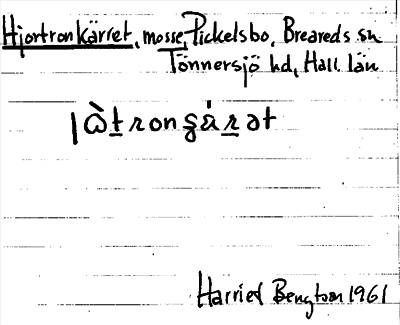 Hjortronkärret, mosse, Pickelsbo, Breareds sn
Tönnersjö hd, Hall. län
Harriet Bengtson 1961